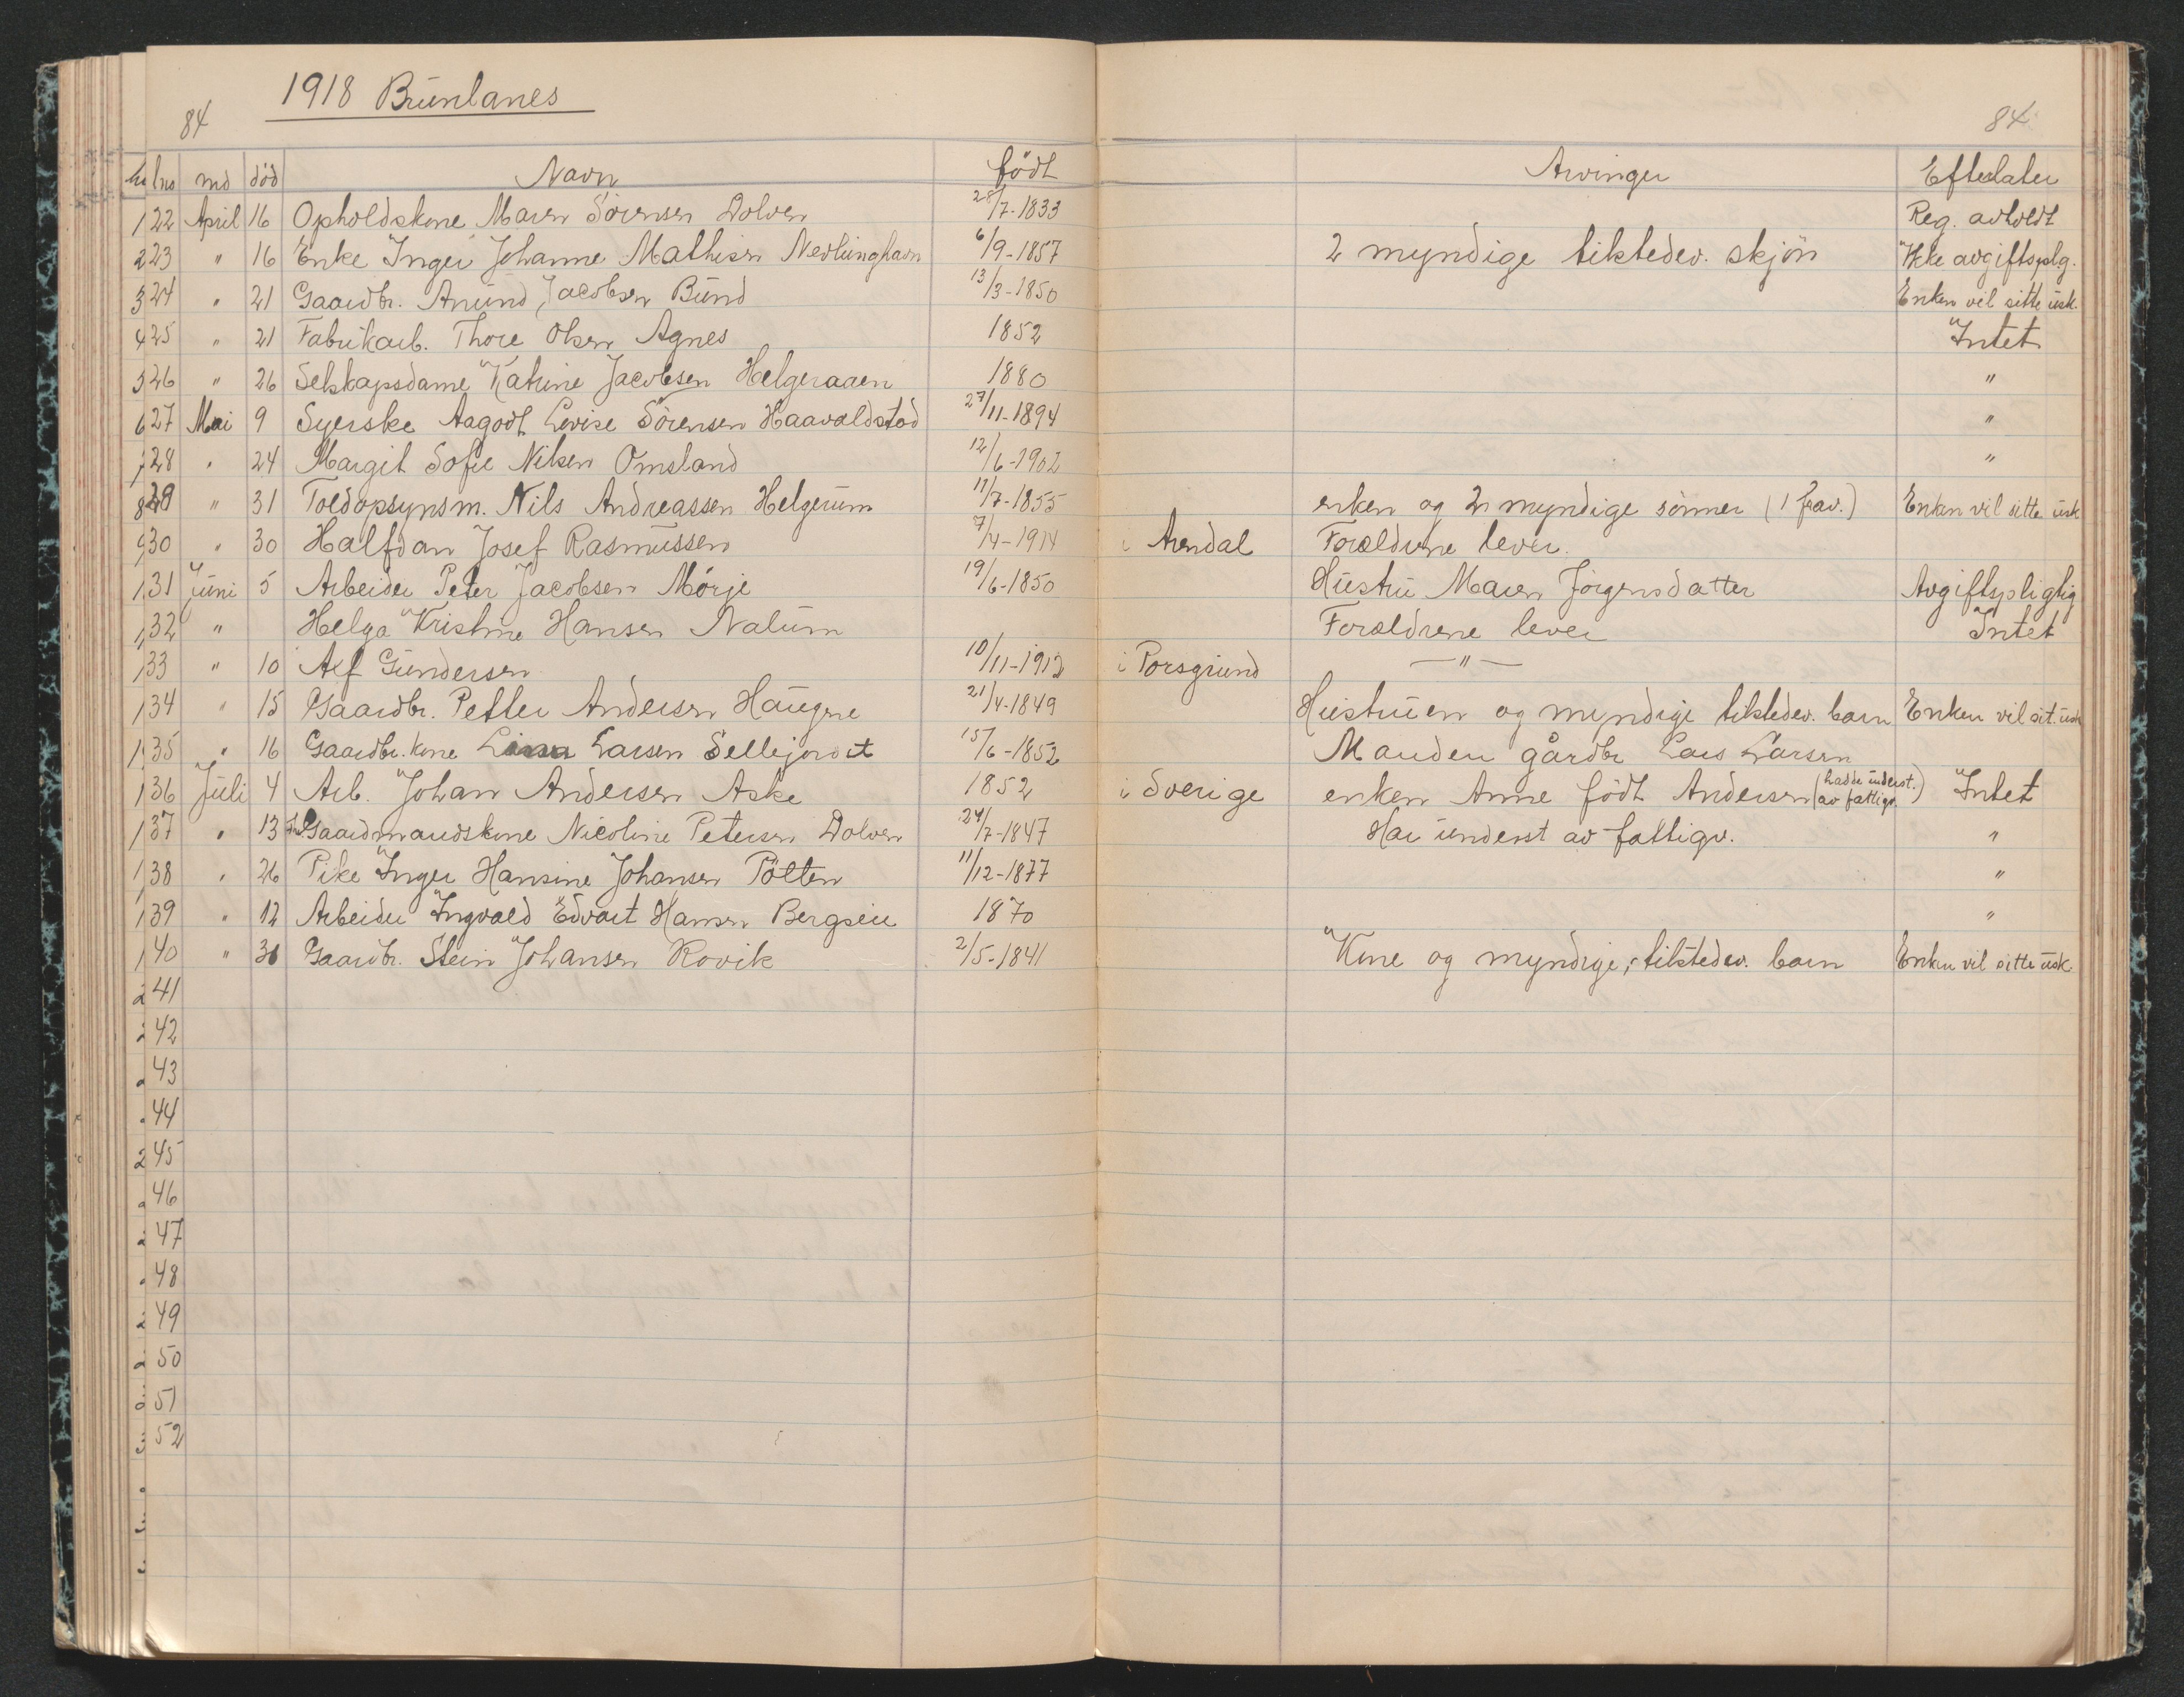 1918 Brünlanes
84
84
lno md død Navn født Arvinger Efterlater
22 April 16 Opholdskone Maren Sørensen Dolven 28/7-1833 Reg. avholdt
23 " 16 Enke Inger Johanne Mathisen Nevlunghavn 6/9-1857 2 myndige tilstedev. skjøn Ikke avgiftsplg.
24 " 21 Gaardbr. Anünd Jacobsen Bünd 13/3-1850 Enken vil sitte üsk.
25 " 21 Fabrikarb. Thore Olsen Agnes 1852 Intet
26 " 26 Selskapsdame Katrine Jacobsen Helgeraaen 1880 "
27 Mai 9 Syerske Aagodt Lovise Sørensen Haavaldstad 27/11-1894 "
28 " 24 Margit Sofie Nilsen Omsland 12/6-1902 "
29 " 31 Toldopsynsm. Nils Andreassen Helgerüm 11/7-1855 enken og 2 myndige sønner (1 frav.) Enken vil sitte üsk
30 " 30 Halfdan Josef Rasmüssen 7/4-1914 i Arendal Forældrene lever.
31 Jüni 5 Arbeider Peter Jacobsen Mørje 19/6-1850 Hüstrü Maren Jørgensdatter Avgiftspligtig
32 " Helga Kristine Hansen Nalüm Forældrene lever Intet
33 " 10 Alf Gündersen 10/11-1912 i Porsgründ — " —
34 " 15 Gaardbr. Petter Andersen Haügene 21/4-1849 Hüstrüen og myndige tilstedev. barn Enken vil sit. üsk
35 " 16 Gaardbr. kone Lina Larsen Sellejordet 15/6-1852 Manden gårdbr Lars Larsen
36 Jüli 4 Arb. Johan Andersen Aske 1852 i Sverige enken Anne født Andersen (hadde ünderst. av fattigv.) Intet
37 " 13 Gaardmandskone Nicoline Petersen Dolven 24/7-1847 Har ünderst av fattigv. "
38 " 26 Pike Inger Hansine Johansen Pølten 11/12-1877 "
39 " 12 Arbeider Ingvald Edvart Hansen Bergseie 1870 "
40 " 31 Gaardbr. Stein Johansen Rovik 2/5-1841 Kone og myndige, tilstedev. barn Enken vil sitte üsk
41
42
43
44
45
46
47
48
49
50
51
52